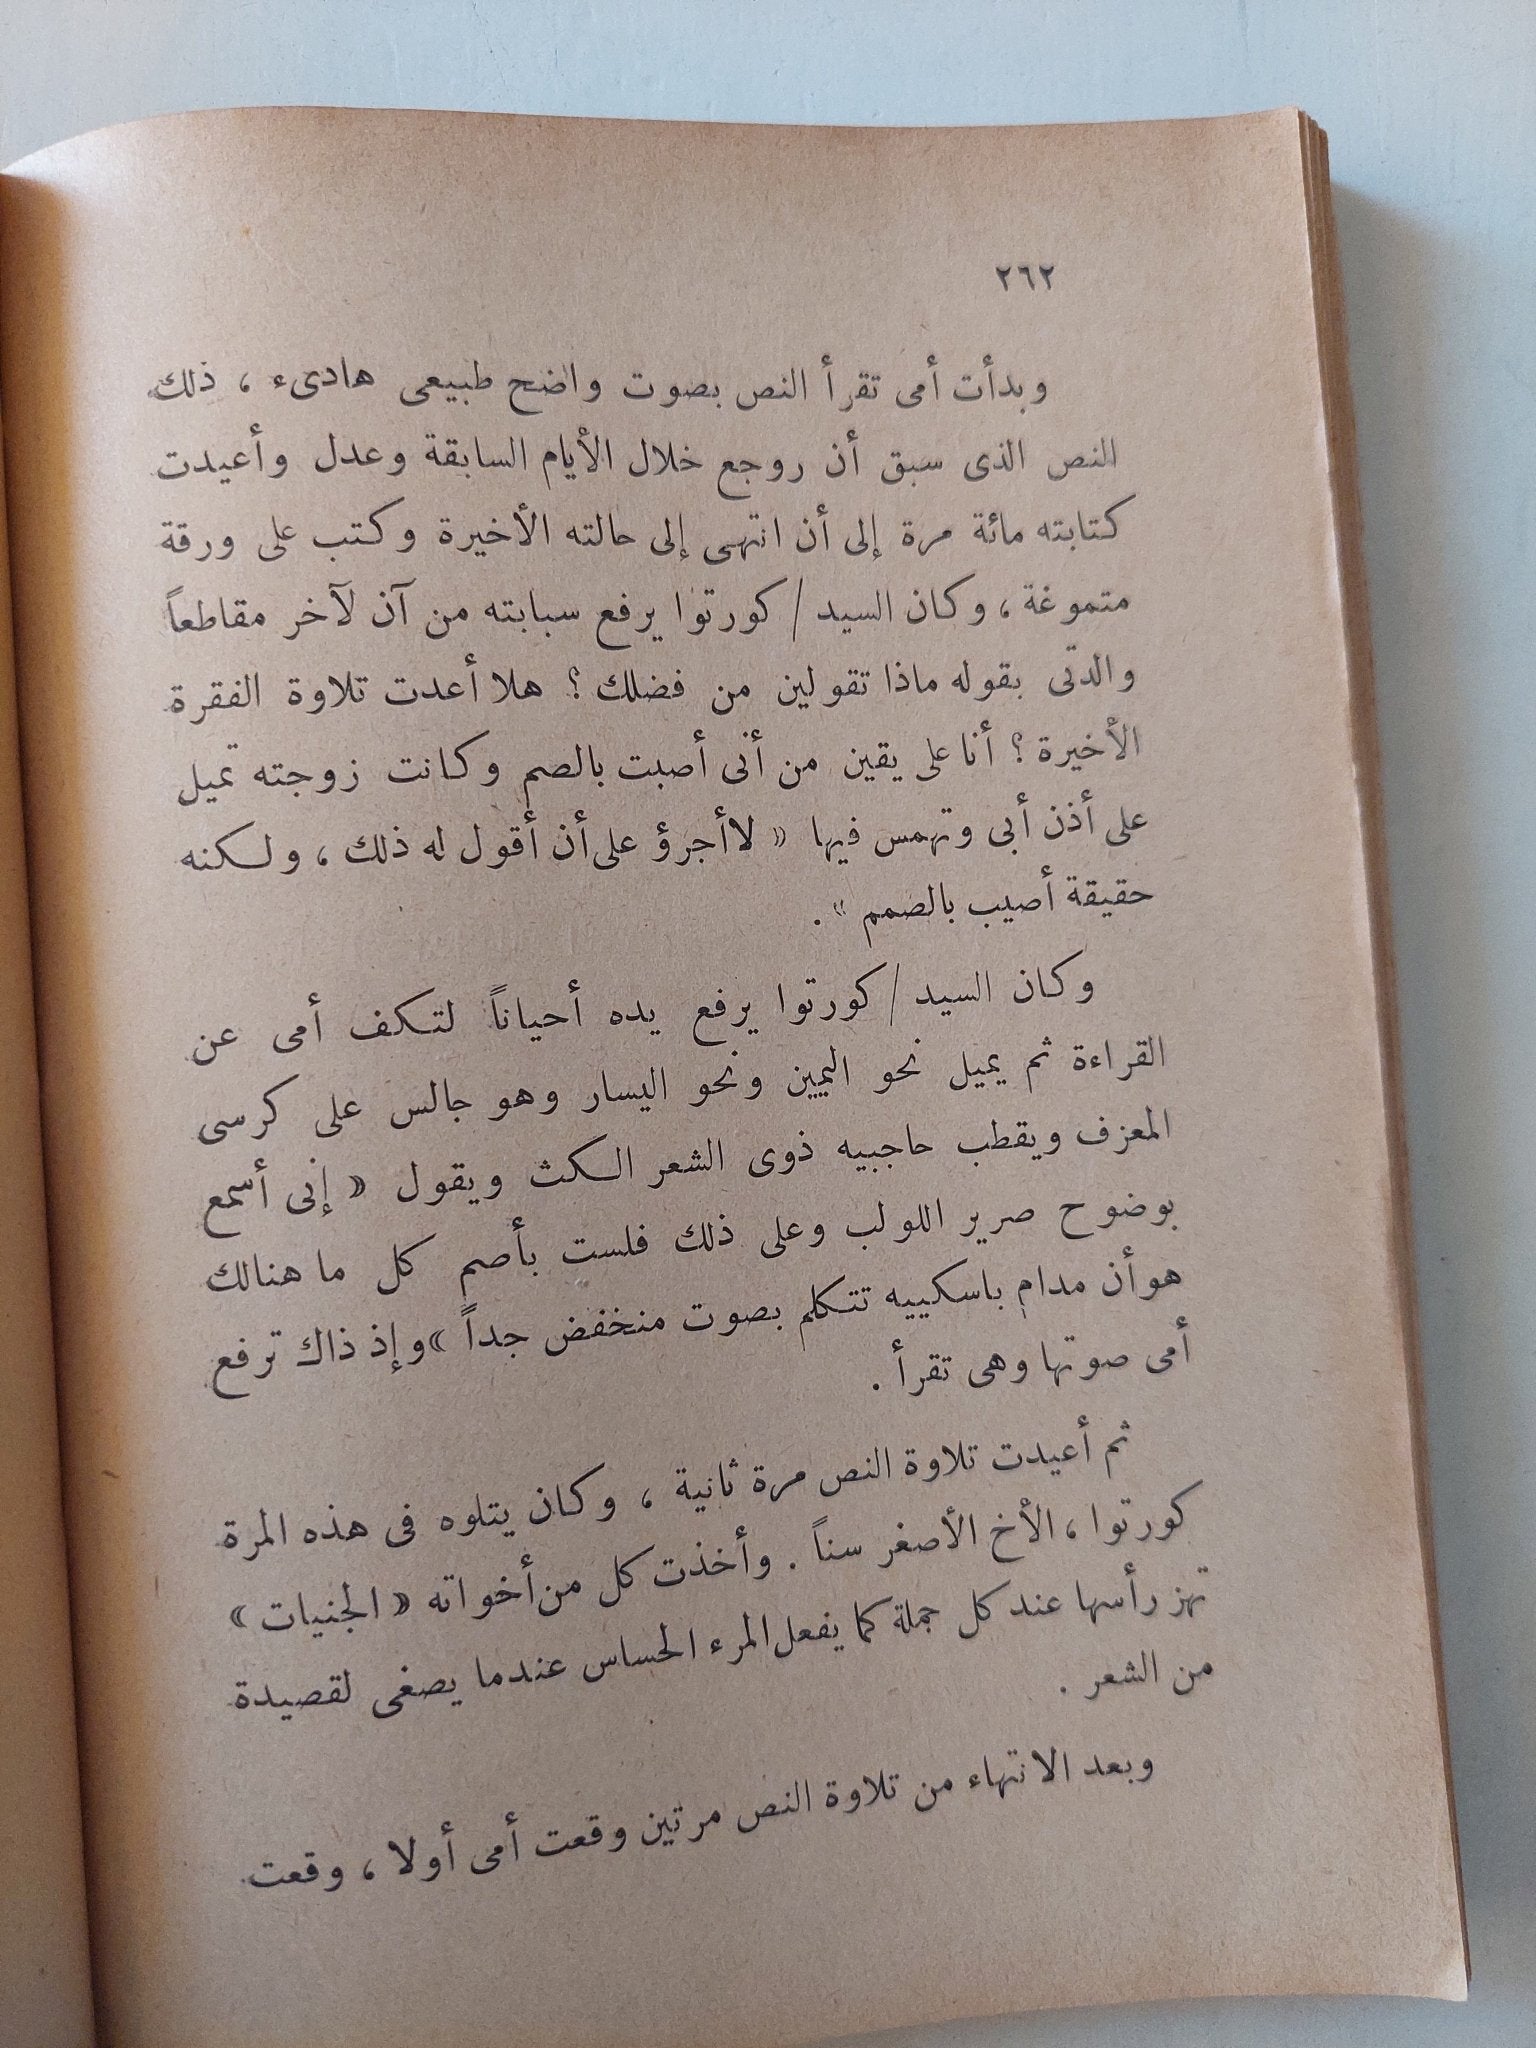 ٢٦٢
وبدأت أمى تقرأ النص بصوت واضح طبيعى هادىء ، ذلك
النص الذى سبق أن روجع خلال الأيام السابقة وعدل وأعيدت
كتابته مائة مرة إلى أن انتهى إلى حالته الأخيرة وكتب على ورقة
متموغة ، وكان السيد / كورتوا يرفع سبابته من آن لآخر مقاطعاً
والدتى بقوله ماذا تقولين من فضلك ؟ هلا أعدت تلاوة الفقرة
الأخيرة ؟ أنا على يقين من أنى أصبت بالصم وكانت زوجته تميل
على أذن أبى وتهمس فيها « لا أجرؤ على أن أقول له ذلك ، ولكنه
حقيقة أصيب بالصمم » .
وكان السيد / كورتوا يرفع يده أحياناً لتكف أمى عن
القراءة ثم يميل نحو اليمين ونحو اليسار وهو جالس على كرسى
المعزف ويقطب حاجبيه ذوى الشعر الكث ويقول « إنى أسمع
بوضوح صرير اللولب وعلى ذلك فلست بأصم كل ما هنالك
هو أن مدام باسكييه تتكلم بصوت منخفض جداً » وإذ ذاك ترفع
أمى صوتها وهى تقرأ .
ثم أعيدت تلاوة النص مرة ثانية ، وكان يتلوه فى هذه المرة
كورتوا ، الأخ الأصغر سناً . وأخذت كل من أخواته « الجنيات »
تهز رأسها عند كل جملة كما يفعل المرء الحساس عندما يصغى لقصيدة
من الشعر .
وبعد الانتهاء من تلاوة النص مرتين وقعت أمى أولا ، وقعت